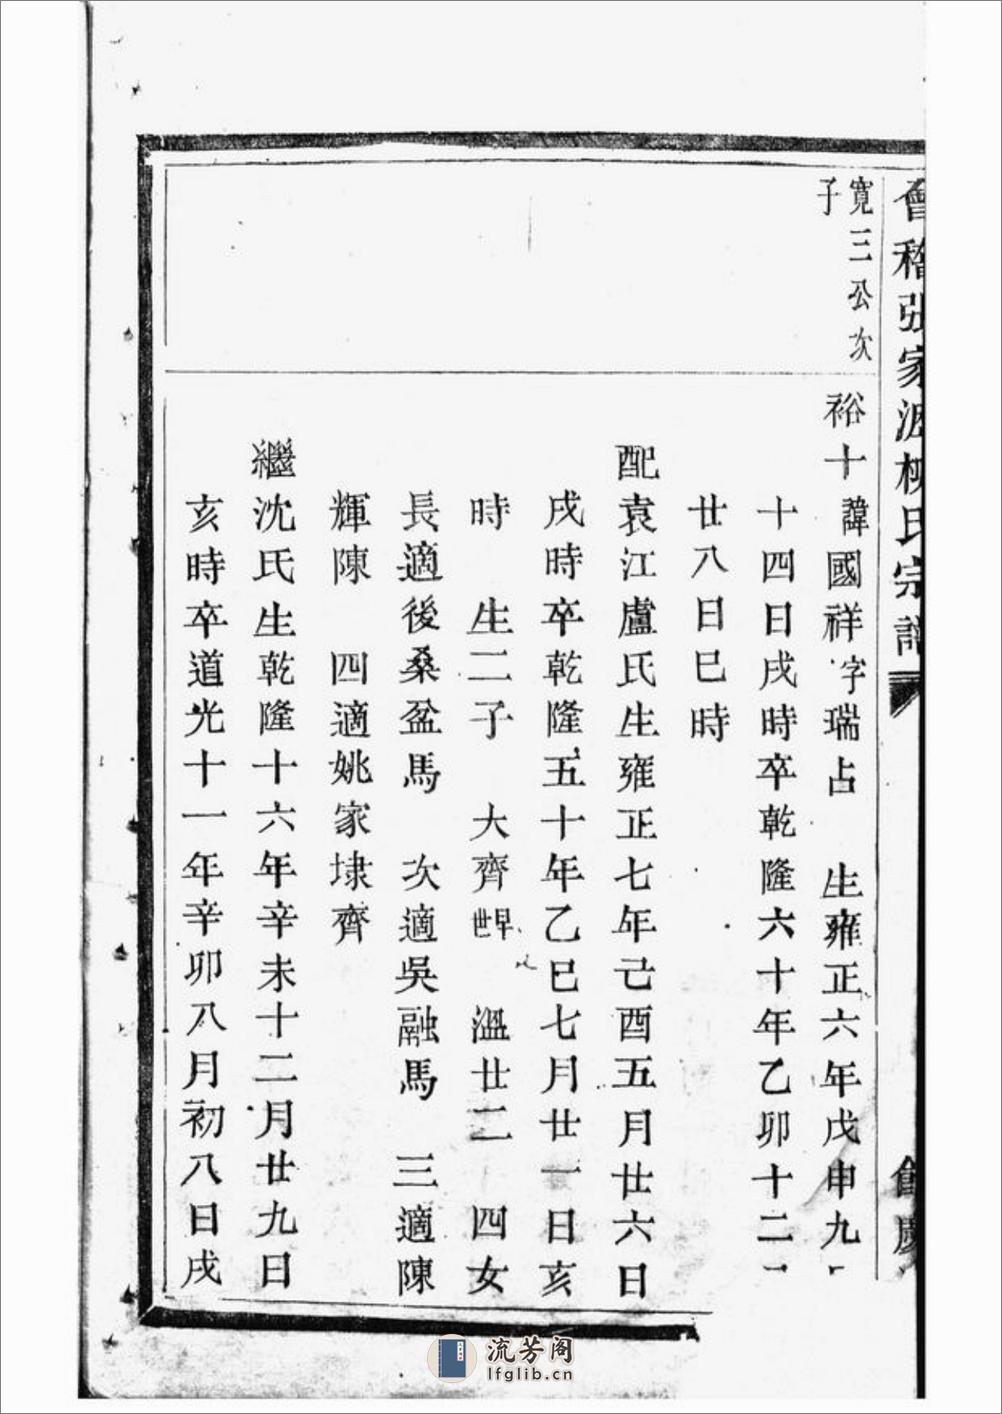 會稽張家泚柳氏宗譜
餘慶
寬三公次
子
裕十諱國祥字瑞占 生雍正六年戊申九
十四日戌時卒乾隆六十年乙卯十二
廿八日巳時
配袁江盧氏生雍正七年己酉五月廿六日
戌時卒乾隆五十年乙巳七月廿一日亥
時 生二子 大齊早世 溫廿二 四女
長適後桑盆馬 次適吳融馬 三適陳
輝陳 四適姚家埭齊
繼沈氏生乾隆十六年辛未十二月廿九日
亥時卒道光十一年辛卯八月初八日戌
流芳阁
lfglib.cn